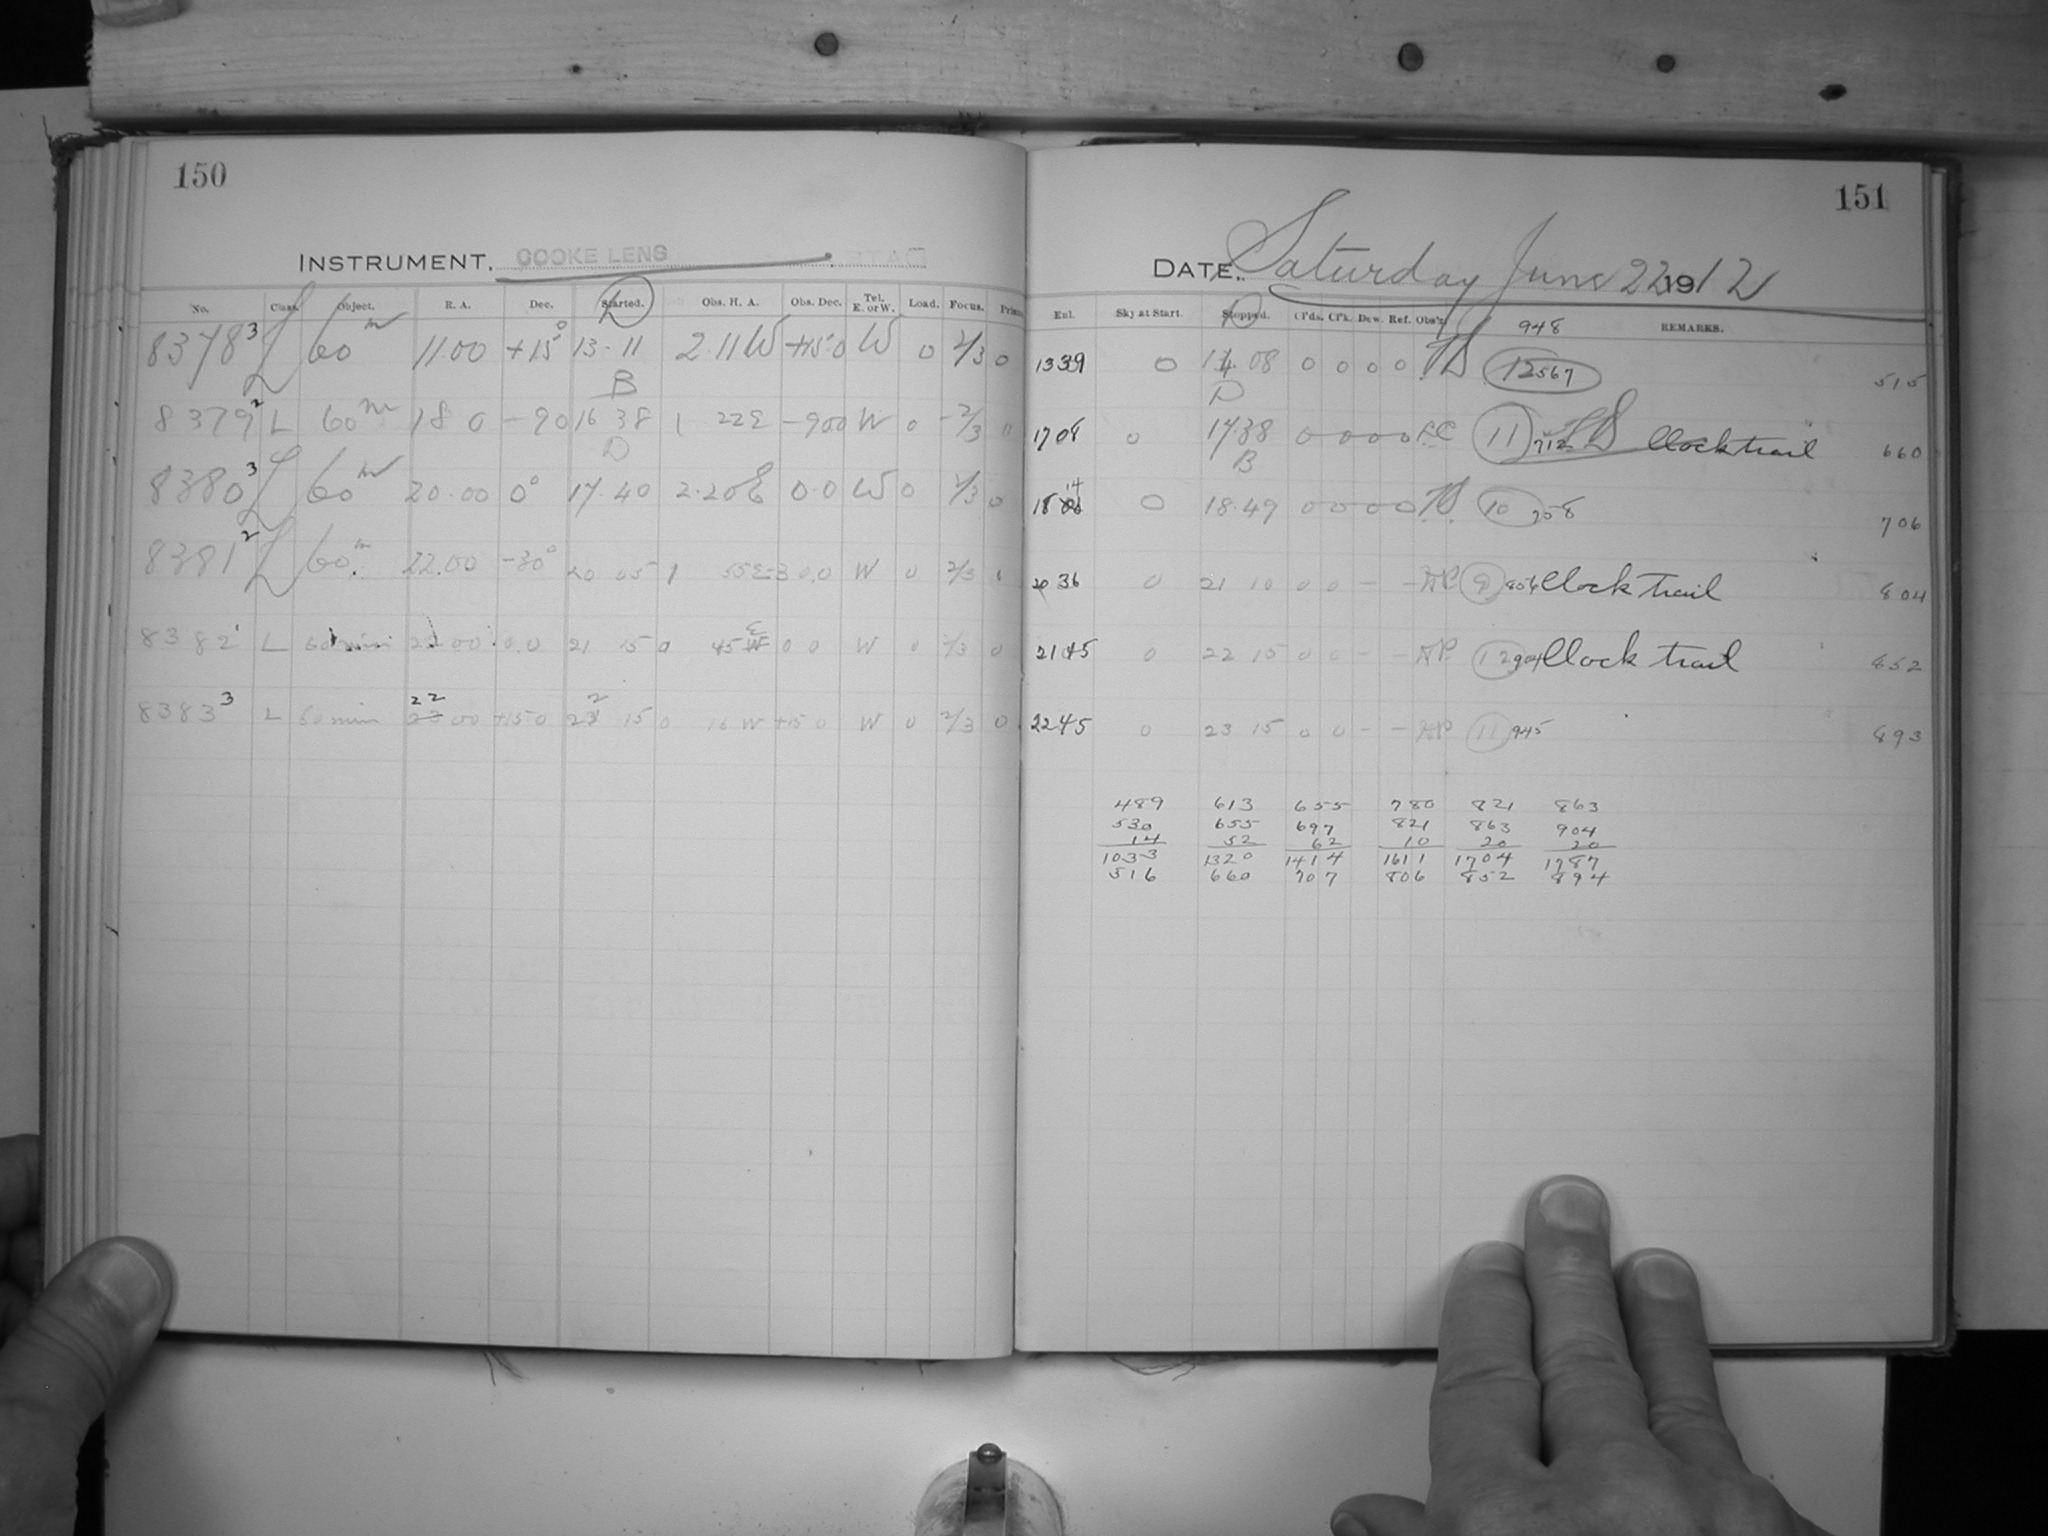 150
INSTRUMENT. COOKE LENS
No. Class. Object. R. A. Dec. Started. Obs. H. A. Obs. Dec. Tel. E. or W. Load. Focus.
D
8378 3 L 60 m 11.00 +15° 13.11 2.11 W +15.0 W 0 2/3 0
B
8379 2 L 60 m 18 0 -90 16 38 1 22 E -900 W 0 -2/3 0
D
8380 3 L 60 m 20.00 0° 17.40 2.20 E 0.0 W 0 2/3 0
8381 2 L 60 m 22.00 -30° 20 05 1 55 E -30.0 W 0 2/3
8382 1 L 60 min 00 0.0 21 15 0 45 E 0 0 W 0 2/3 0
8383 3 L 60 min 22 00 +15 0 22 15 0 16 W +15 0 W 0 2/3 0
151
DATE. Saturday June 22 1912
Enl. Sky at Start. Stopped. Cl'ds. Cl'k. Dew. Ref. Obs'r. 948 REMARKS.
D
1339 0 14.08 0 0 0 0 12 567 515
D
1708 0 17.38 0 0 0 0 11 712 Clock trail 660
B
18 14 0 18.49 0 0 0 0 10 758 706
20 36 0 21 10 0 0 - - 9 856 Clock trail 804
2145 0 22 15 0 0 - - 12 904 Clock trail 852
2245 0 23 15 0 0 - - 11 945 893
489 613 655 780 821 863
530 655 697 821 863 904
14 52 62 10 20 20
1033 1320 1414 1611 1704 1787
516 660 707 806 852 894